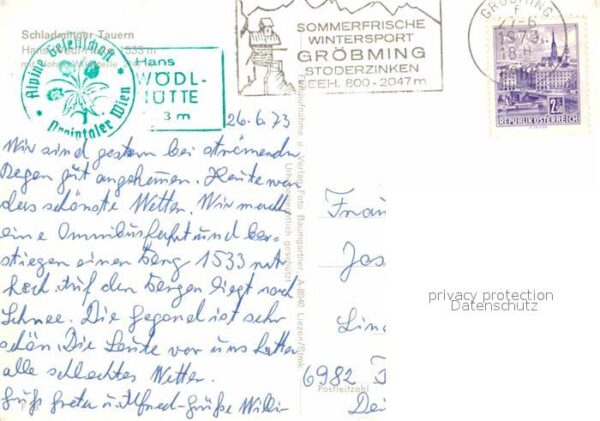 Schladminger Tauern
Hans Wödl-Hütte 1533 m
Alpine Gesellschaft
Preintaler Wien
Hans
WÖDL-
HÜTTE
3 m
SOMMERFRISCHE
WINTERSPORT
GRÖBMING
STODERZINKEN
SEEH. 800-2047 m
GRÖBMING
27-6
1973
18
2.50
REPUBLIK ÖSTERREICH
26.6.73
Wir sind gestern bei strömenden
Regen gut angekommen. Heute war
das schönste Wetter. Wir mach
eine Omnibusfahrt und be-
stiegen einen Berg 1533 mtr
hoch. Auf den Bergen liegt noch
Schnee. Die Gegend ist sehr
schön. Die Leute vor uns hatten
alle schlechtes Wetter.
Gruß Greta u. Alfred - Grüße Willi
Verlag Foto Baumgartner, A-8940 Liezen/Stmk.
Frau
Jos
Lin
6982
Postleitzahl
privacy protection
Datenschutz